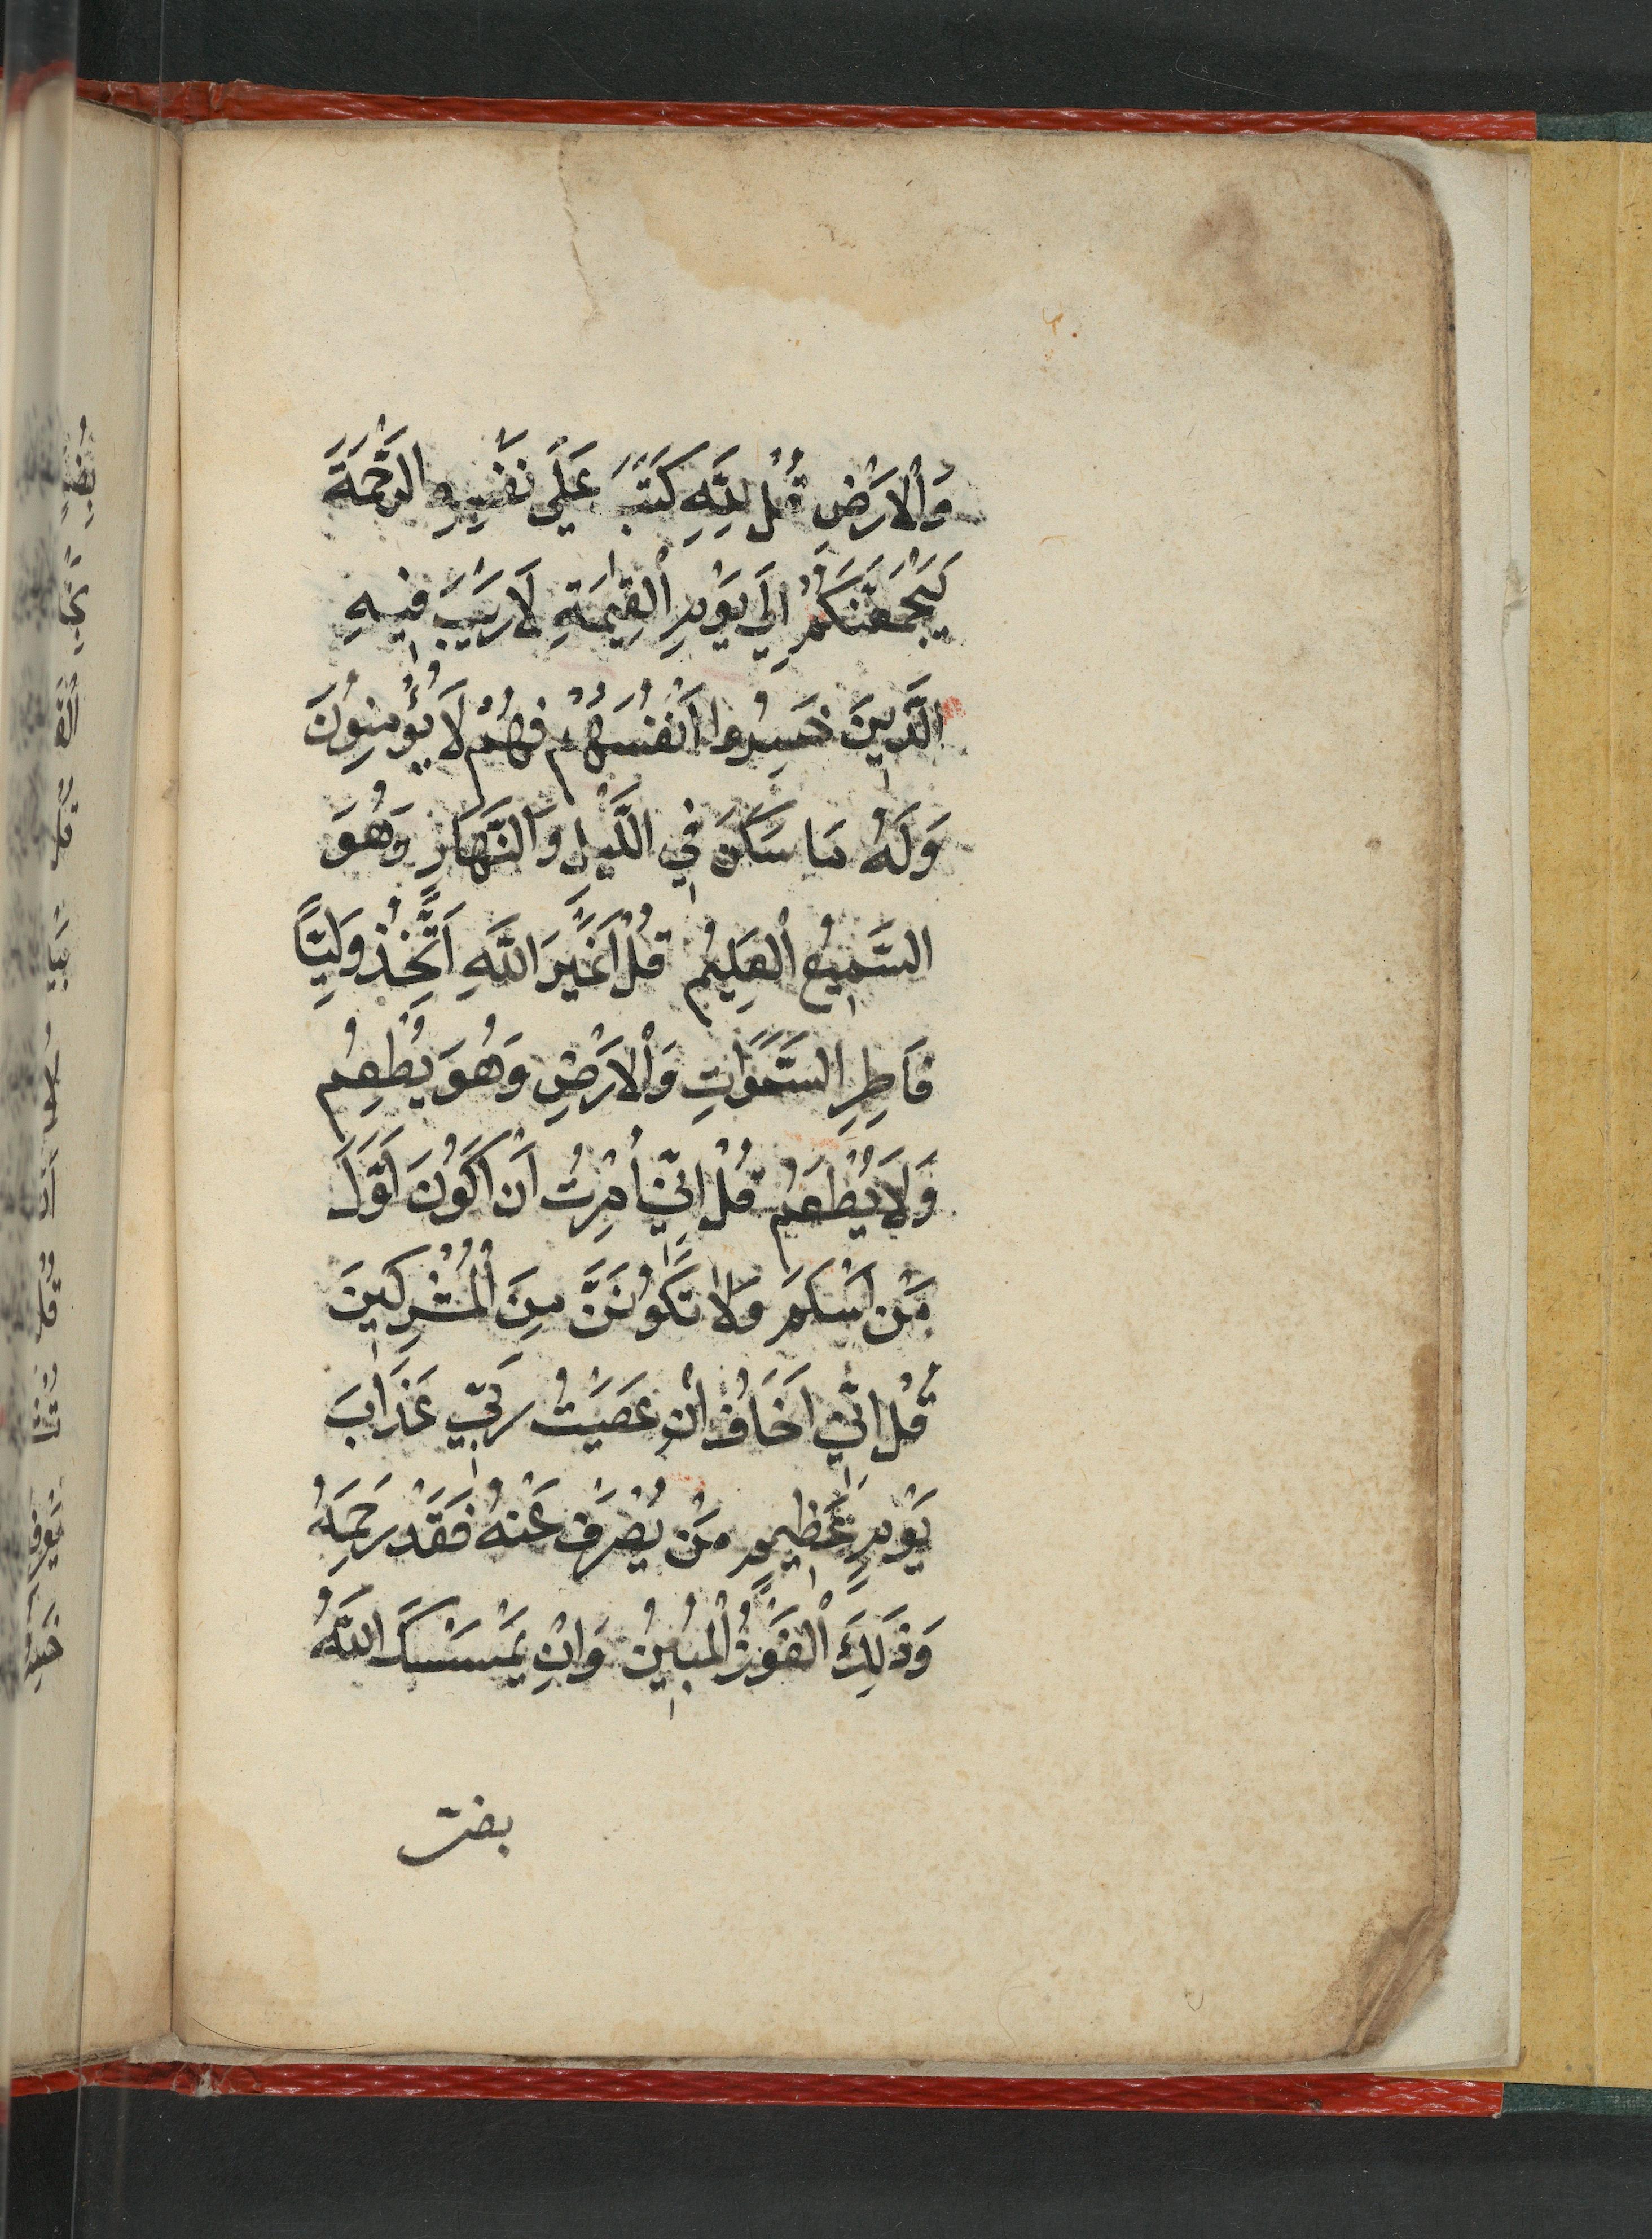 وَالْاَرْضِ قُلْ لِلّٰهِ كَتَبَ عَلٰى نَفْسِهِ الرَّحْمَةَ
لَيَجْمَعَنَّكُمْ اِلٰى يَوْمِ الْقِيٰمَةِ لَا رَيْبَ فِيهِ
الَّذِينَ خَسِرُوا اَنْفُسَهُمْ فَهُمْ لَا يُؤْمِنُونَ
وَلَهُ مَا سَكَنَ فِي الَّيْلِ وَالنَّهَارِ وَهُوَ
السَّمِيعُ الْعَلِيمُ قُلْ اَغَيْرَ اللّٰهِ اَتَّخِذُ وَلِيًّا
فَاطِرِ السَّمٰوَاتِ وَالْاَرْضِ وَهُوَ يُطْعِمُ
وَلَا يُطْعَمُ قُلْ اِنِّي اُمِرْتُ اَنْ اَكُونَ اَوَّلَ
مَنْ اَسْلَمَ وَلَا تَكُونَنَّ مِنَ الْمُشْرِكِينَ
قُلْ اِنِّي اَخَافُ اِنْ عَصَيْتُ رَبِّي عَذَابَ
يَوْمٍ عَظِيمٍ مَنْ يُصْرَفْ عَنْهُ فَقَدْ رَحِمَهُ
وَذٰلِكَ الْفَوْزُ الْمُبِينُ وَاِنْ يَمْسَسْكَ اللّٰهُ
بضر